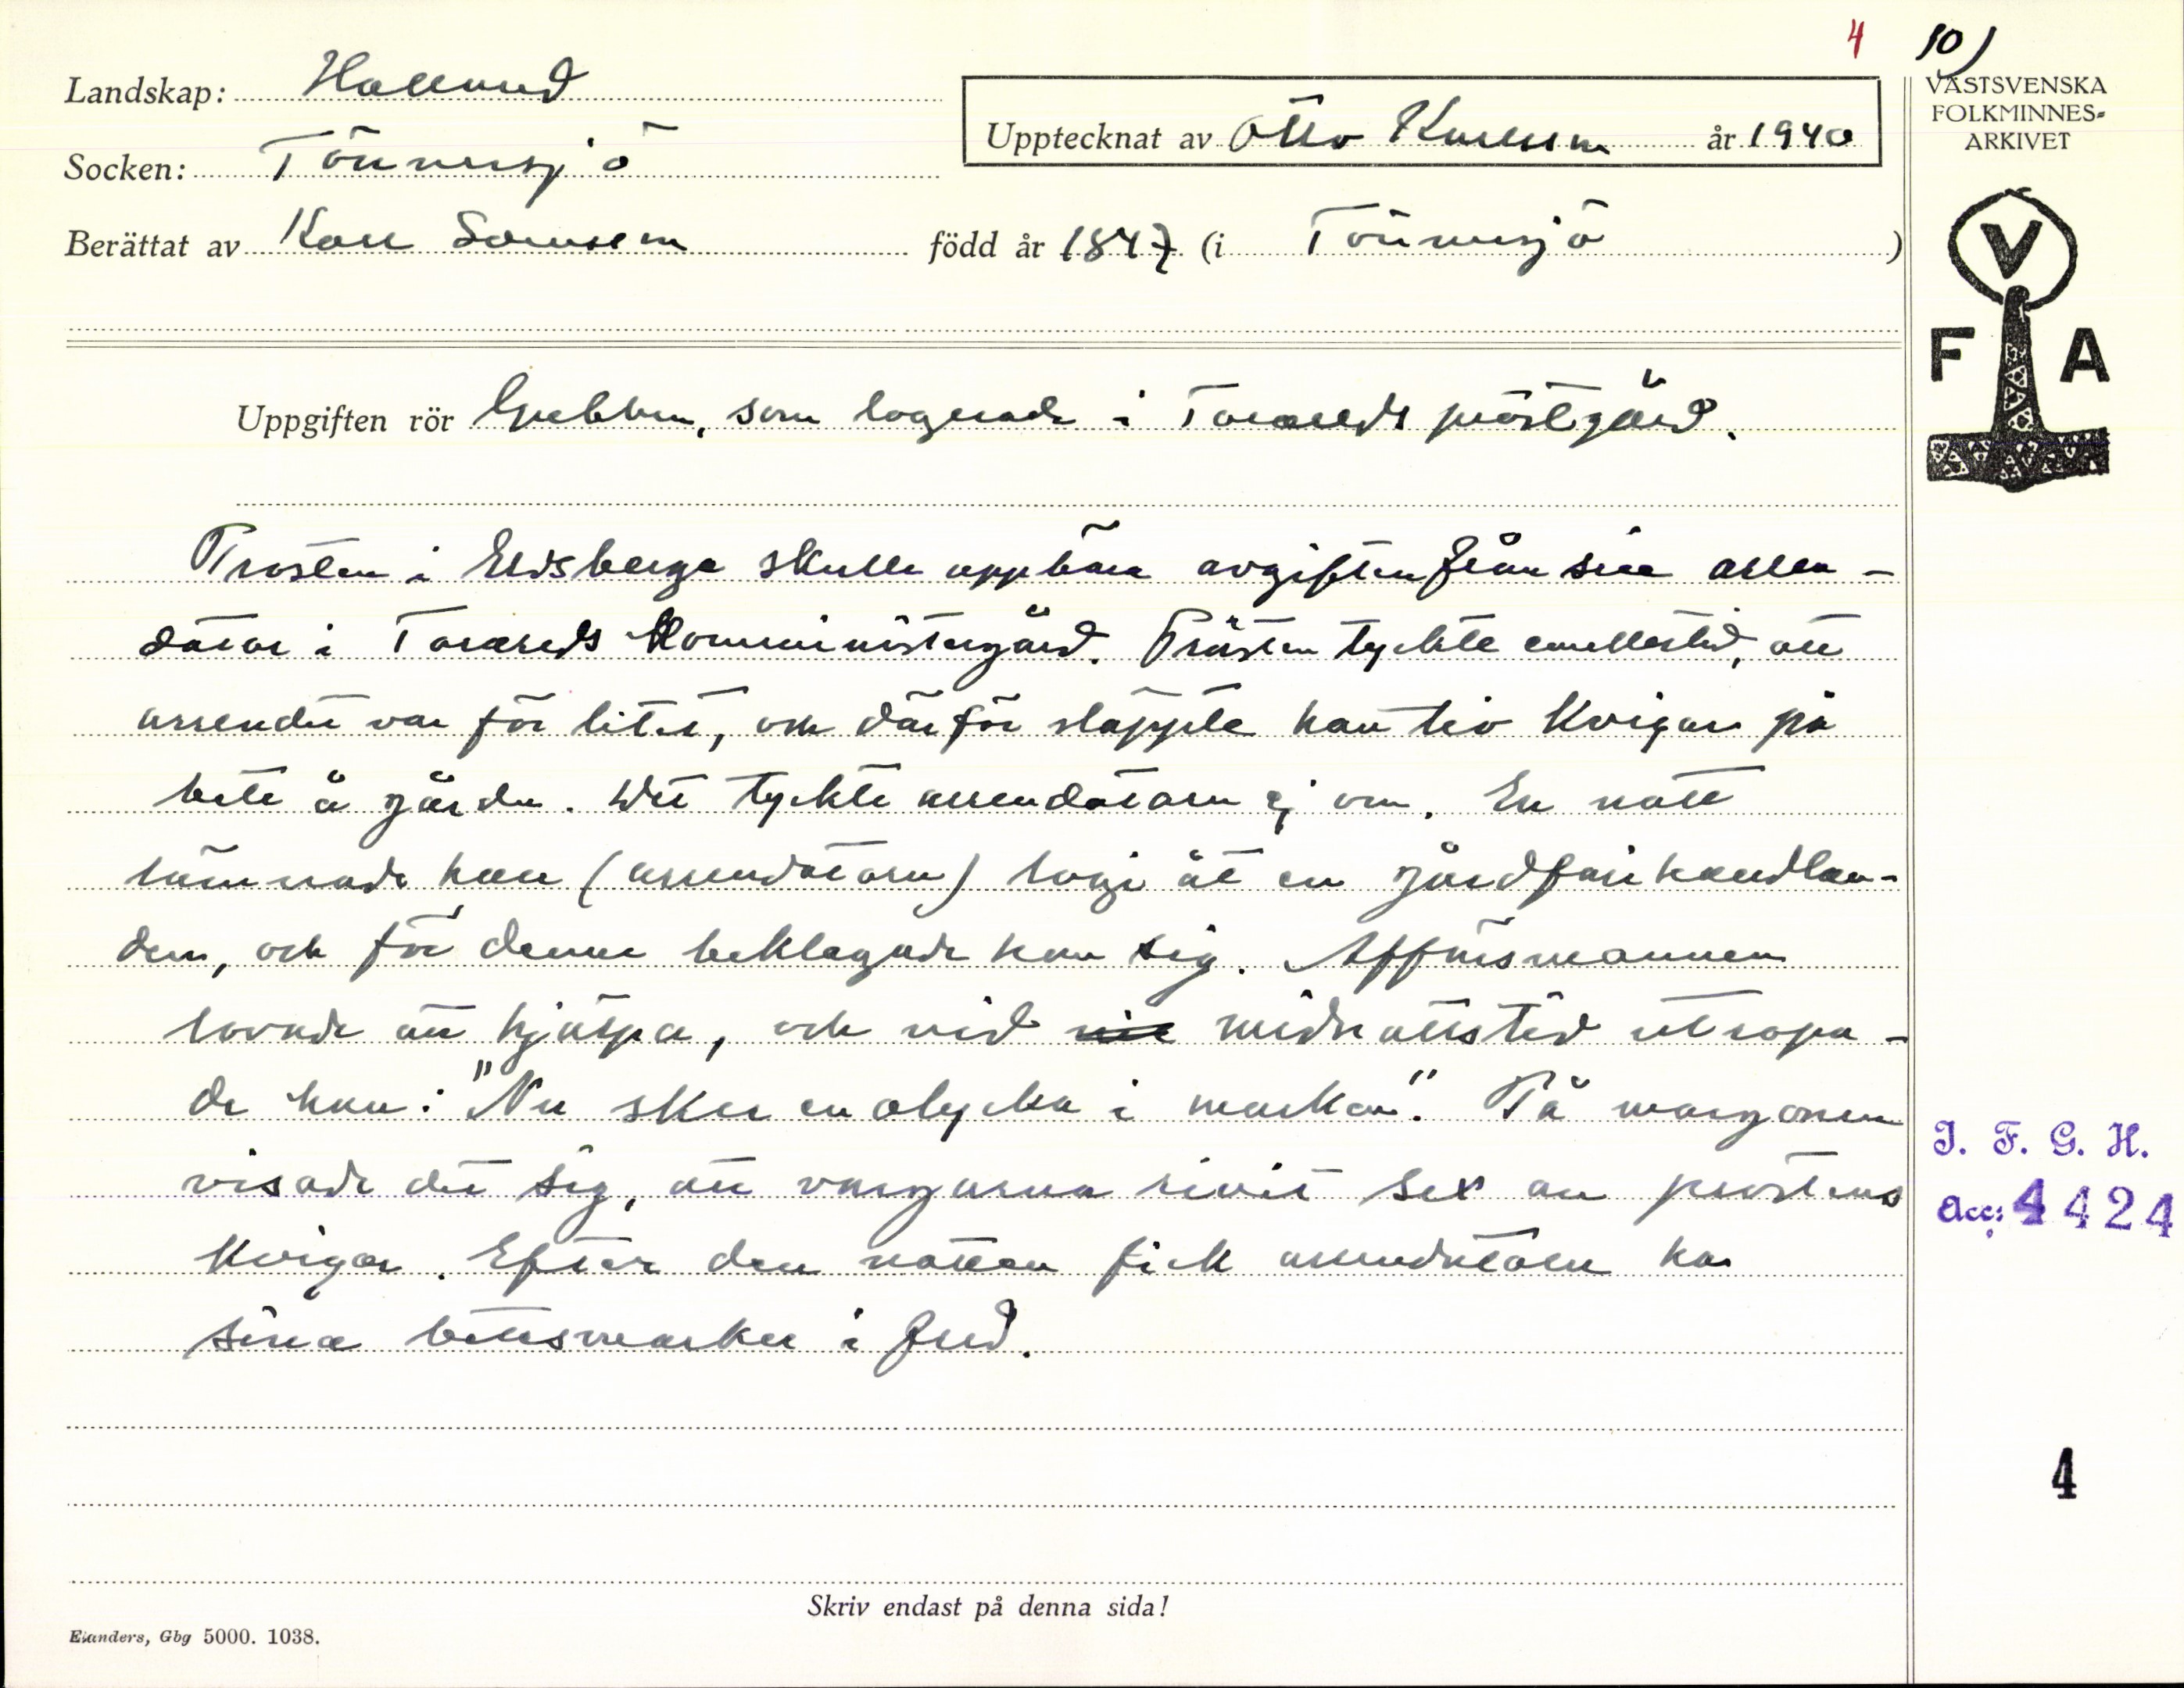 4 10)
Landskap: Halland
VÄSTSVENSKA
FOLKMINNES-
ARKIVET
Upptecknat av Otto Karlsson år 1940
Socken: Tönnersjö
Berättat av Karl född år 1847 (i Tönnersjö)
V
F A
Uppgiften rör Gubben, som logerade i Tvååreds prästgård.
Prosten i Eldsberga skulle uppbära avgiften från sin arren-
dator i Tvååreds Komministergård. Prosten tyckte emellertid, att
arrendet var för litet, och därför släppte han tio kvigor på
bete å gården. Det tyckte arrendatorn ej om. En natt
lämnade han (arrendatorn) logi åt en gårdfarihandlan-
den, och för denne beklagade han sig. Affärsmannen
lovade att hjälpa, och vid midnattstid utropa-
de han: "Nu sker en olycka i marken". På morgonen
visade det sig, att vargarna rivit sex av prostens
kvigor. Efter den natten fick arrendatorn ha
sina betesmarker i fred.
I. F. G. H.
Acc: 4424
4
Skriv endast på denna sida!
Elanders, Gbg 5000. 1038.